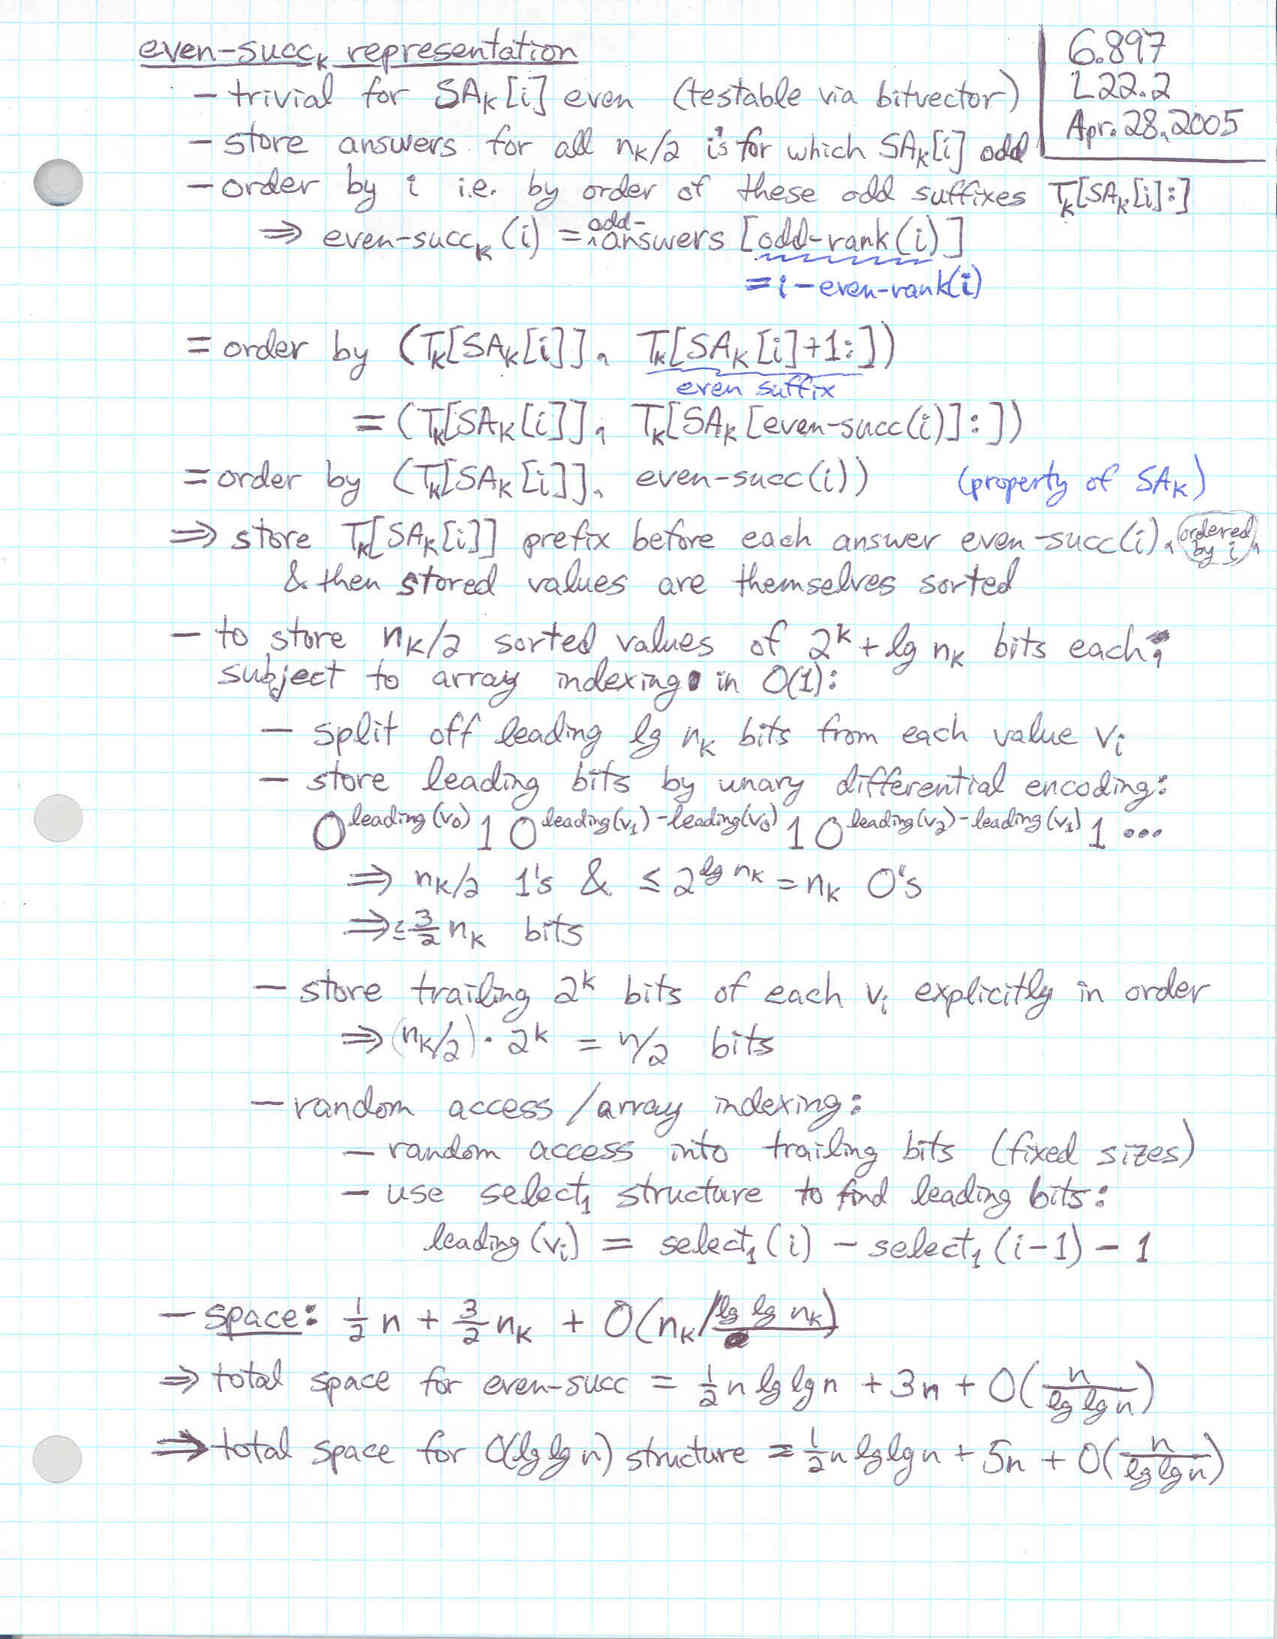 even-succₖ representation
6.897
L22.2
Apr. 28, 2005
– trivial for SAₖ[i] even (testable via bitvector)
– store answers for all nₖ/2 i's for which SAₖ[i] odd
– order by i i.e. by order of these odd suffixes Tₖ[SAₖ[i]:]
⇒ even-succₖ(i) = odd-answers [odd-rank(i)]
= i – even-rank(i)
= order by (Tₖ[SAₖ[i]], Tₖ[SAₖ[i]+1:])
even suffix
= (Tₖ[SAₖ[i]], Tₖ[SAₖ[even-succ(i)]:])
= order by (Tₖ[SAₖ[i]], even-succ(i)) (property of SAₖ)
⇒ store Tₖ[SAₖ[i]] prefix before each answer even-succ(i), ordered by i,
& then stored values are themselves sorted
– to store nₖ/2 sorted values of 2ᵏ + lg nₖ bits each,
subject to array indexing in O(1):
– split off leading lg nₖ bits from each value vᵢ
– store leading bits by unary differential encoding:
0^leading(v₀) 1 0^leading(v₁)-leading(v₀) 1 0^leading(v₂)-leading(v₁) 1 ...
⇒ nₖ/2 1's & ≤ 2^lg nₖ = nₖ 0's
⇒ ≤ 3/2 nₖ bits
– store trailing 2ᵏ bits of each vᵢ explicitly in order
⇒ (nₖ/2) · 2ᵏ = n/2 bits
– random access/array indexing:
– random access into trailing bits (fixed sizes)
– use select₁ structure to find leading bits:
leading(vᵢ) = select₁(i) – select₁(i-1) – 1
– space: 1/2 n + 3/2 nₖ + O(nₖ/lg lg nₖ)
⇒ total space for even-succ = 1/2 n lg lg n + 3n + O(n/lg lg n)
⇒ total space for O(lg lg n) structure = 1/2 n lg lg n + 5n + O(n/lg lg n)